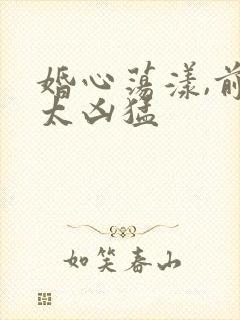 婚心荡漾,前
太凶猛
如笑春山